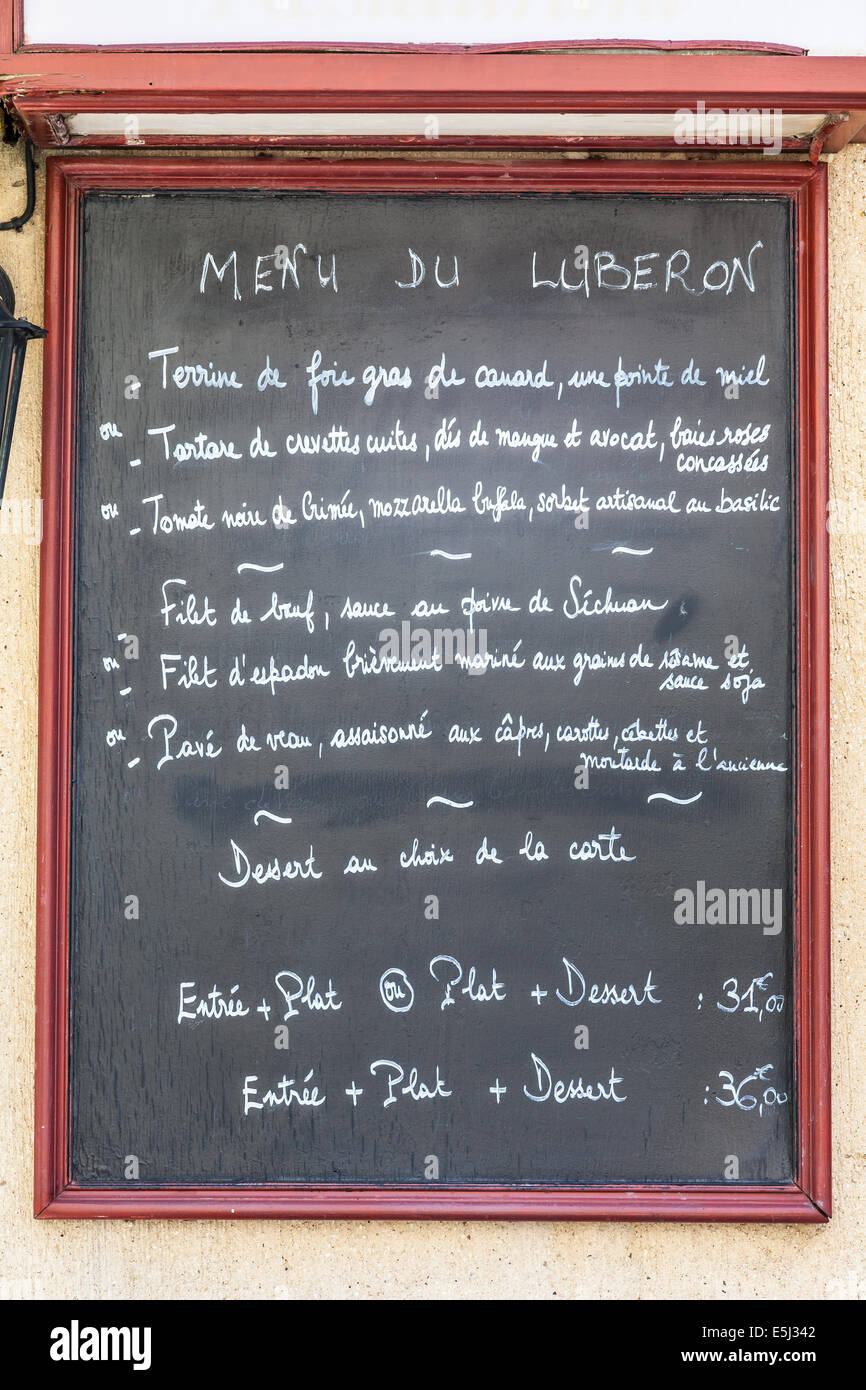 MENU DU LUBERON
- Terrine de foie gras de canard, une pointe de miel
ou - Tartare de crevettes cuites, dés de mangue et avocat, baies roses
concassées
ou - Tomate noire de Crimée, mozzarella buffala, sorbet artisanal au basilic
~ ~ ~
- Filet de bœuf, sauce au poivre de Séchuan
ou - Filet d'espadon brièvement mariné aux grains de sésame et
sauce soja
ou - Pavé de veau, assaisonné aux câpres, carottes, cébettes et
moutarde à l'ancienne
~ ~ ~
Dessert au choix de la carte
Entrée + Plat ou Plat + Dessert : 31,00€
Entrée + Plat + Dessert : 36,00€
alamy stock photo
E5J342
www.alamy.com